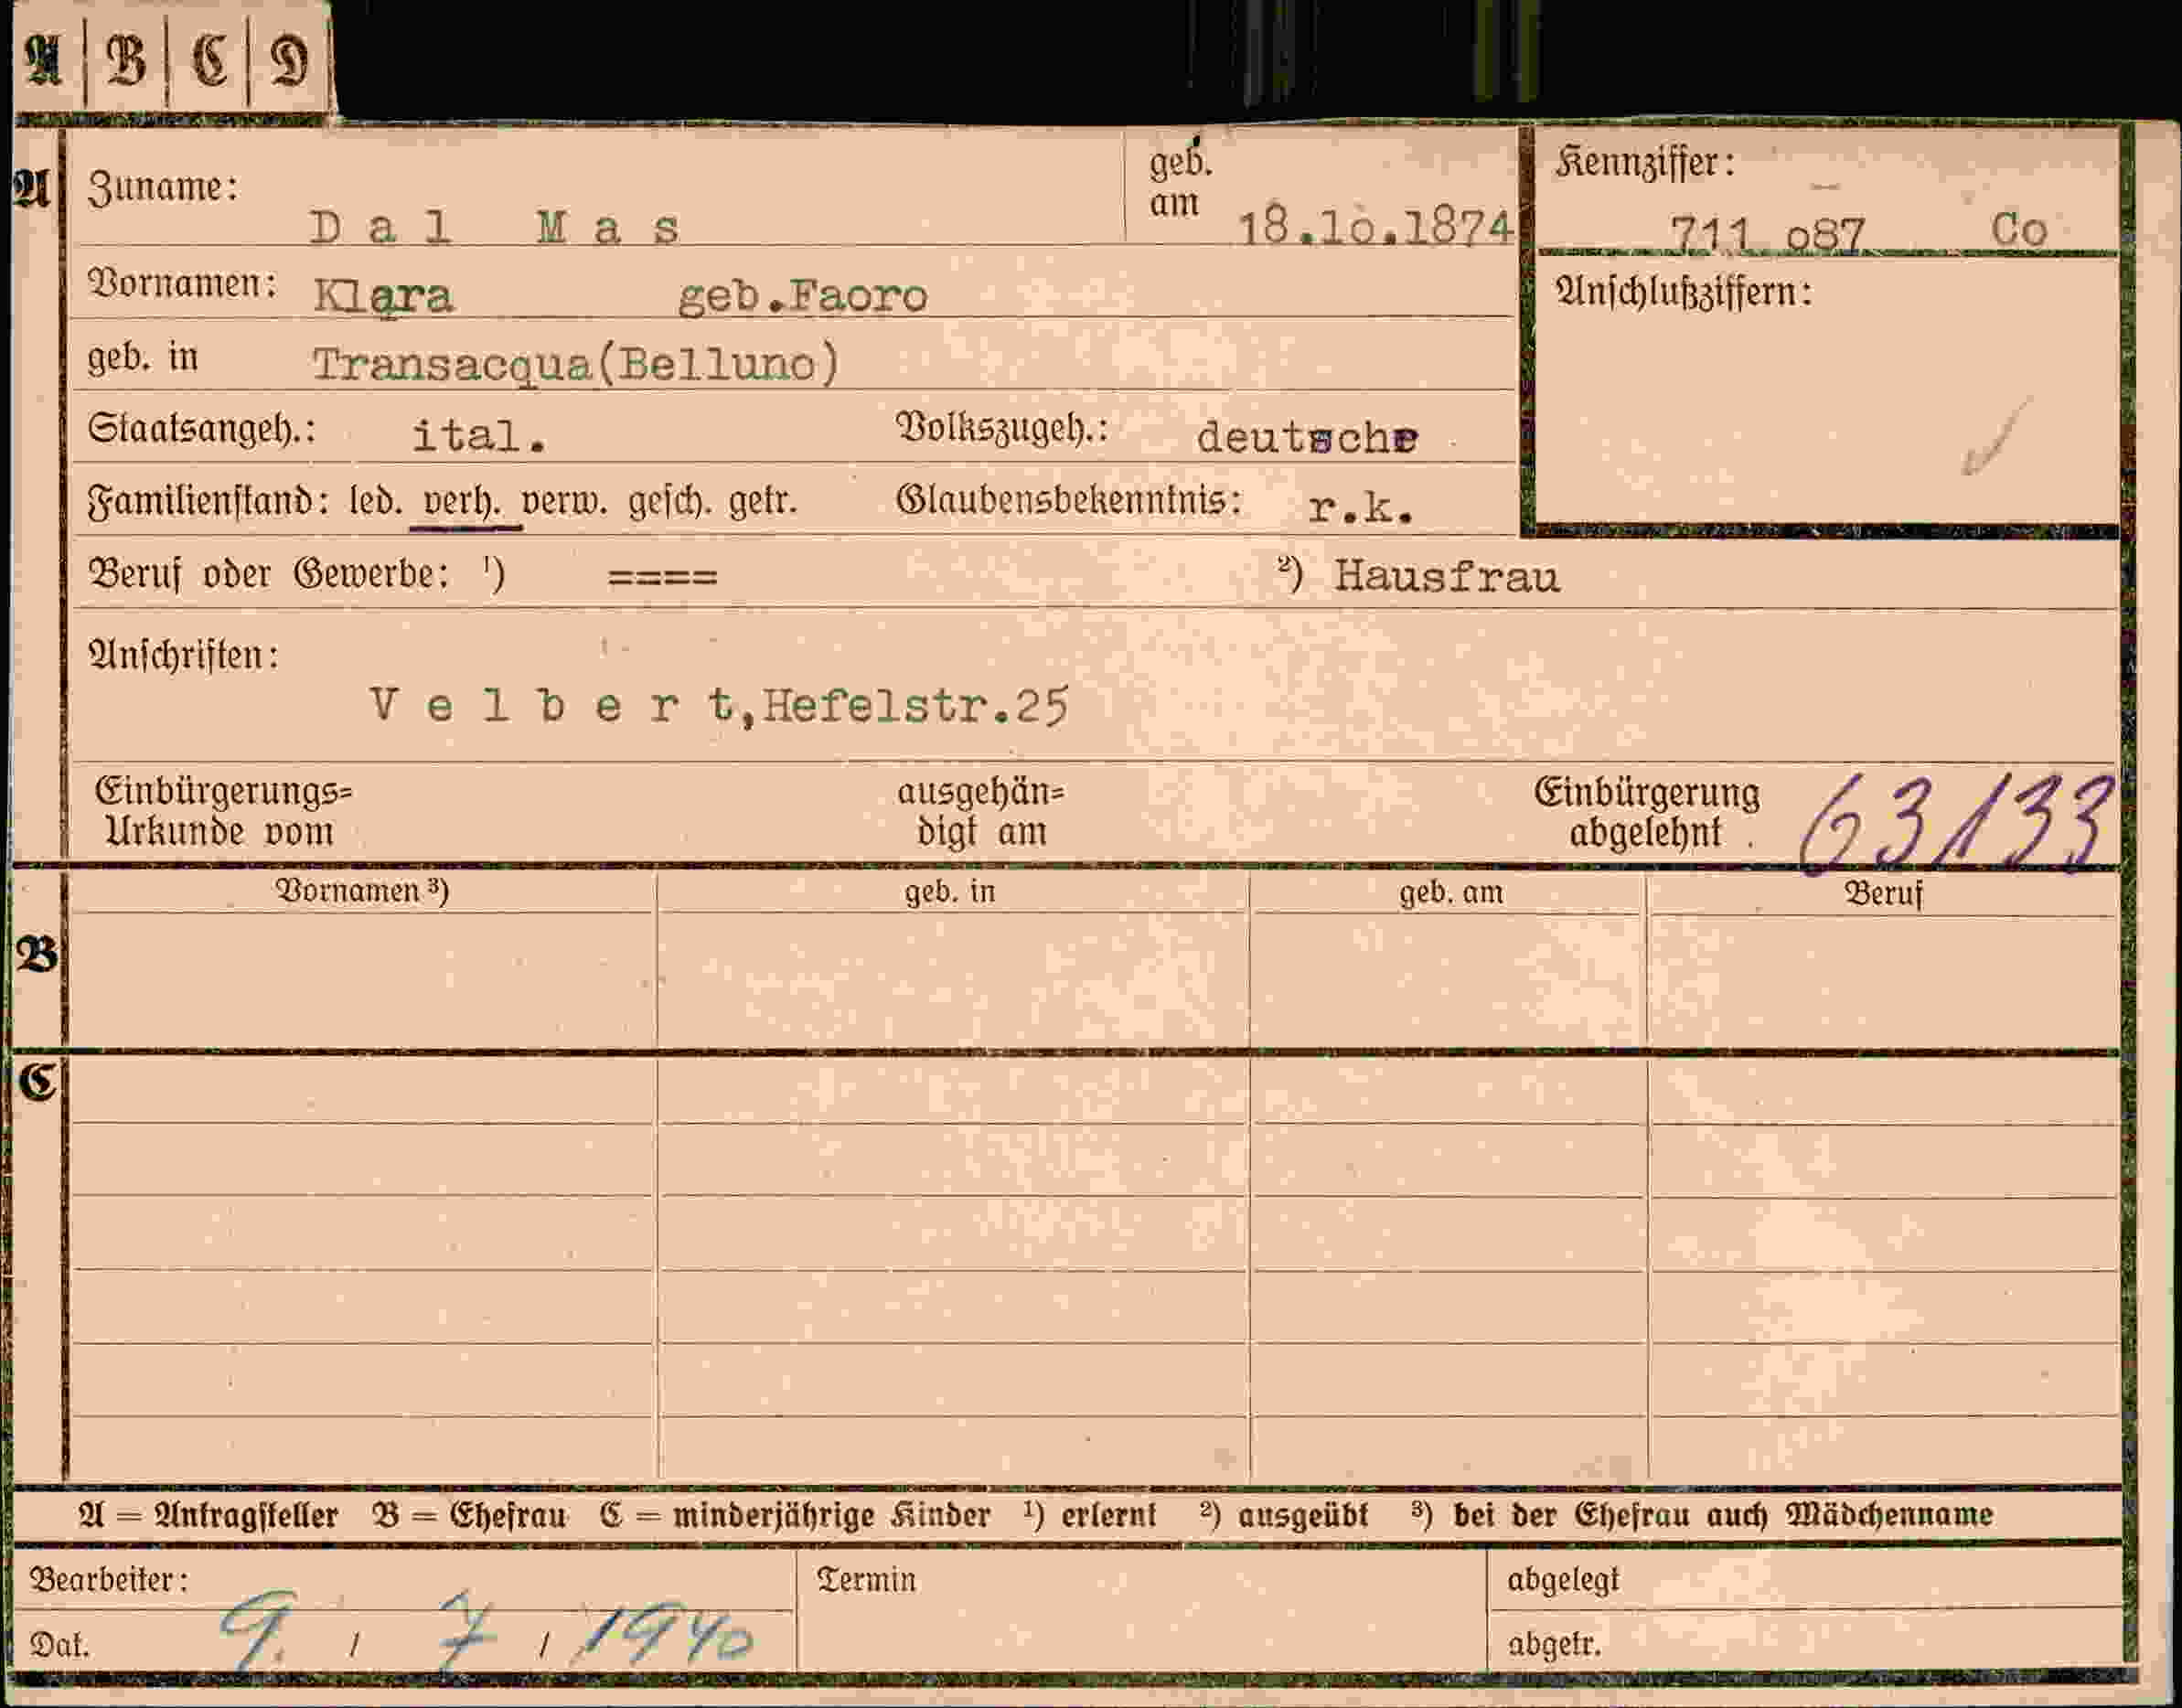 A | B | C | D
A
Zuname: Dal Mas
geb. am 18.1o.1874
Kennziffer: 711 o87 Co
Vornamen: Klara geb.Faoro
Anschlußziffern:
geb. in Transacqua(Belluno)
Staatsangeh.: ital. Volkszugeh.: deutsche
Familienstand: led. verh. verw. gesch. getr. Glaubensbekenntnis: r.k.
Beruf oder Gewerbe: ¹) ==== ²) Hausfrau
Anschriften:
Velbert,Hefelstr.25
Einbürgerungs=
Urkunde vom
ausgehän=
digt am
Einbürgerung
abgelehnt
63133
Vornamen ³) geb. in geb. am Beruf
B
C
A = Antragsteller B = Ehefrau C = minderjährige Kinder ¹) erlernt ²) ausgeübt ³) bei der Ehefrau auch Mädchenname
Bearbeiter:
Dat. 9. / 7 / 1940
Termin
abgelegt
abgetr.